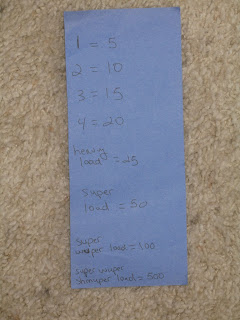 1 = 5
2 = 10
3 = 15
4 = 20
heavy
load = 25
Super
load = 50
Super
load = 100
super
load = 500